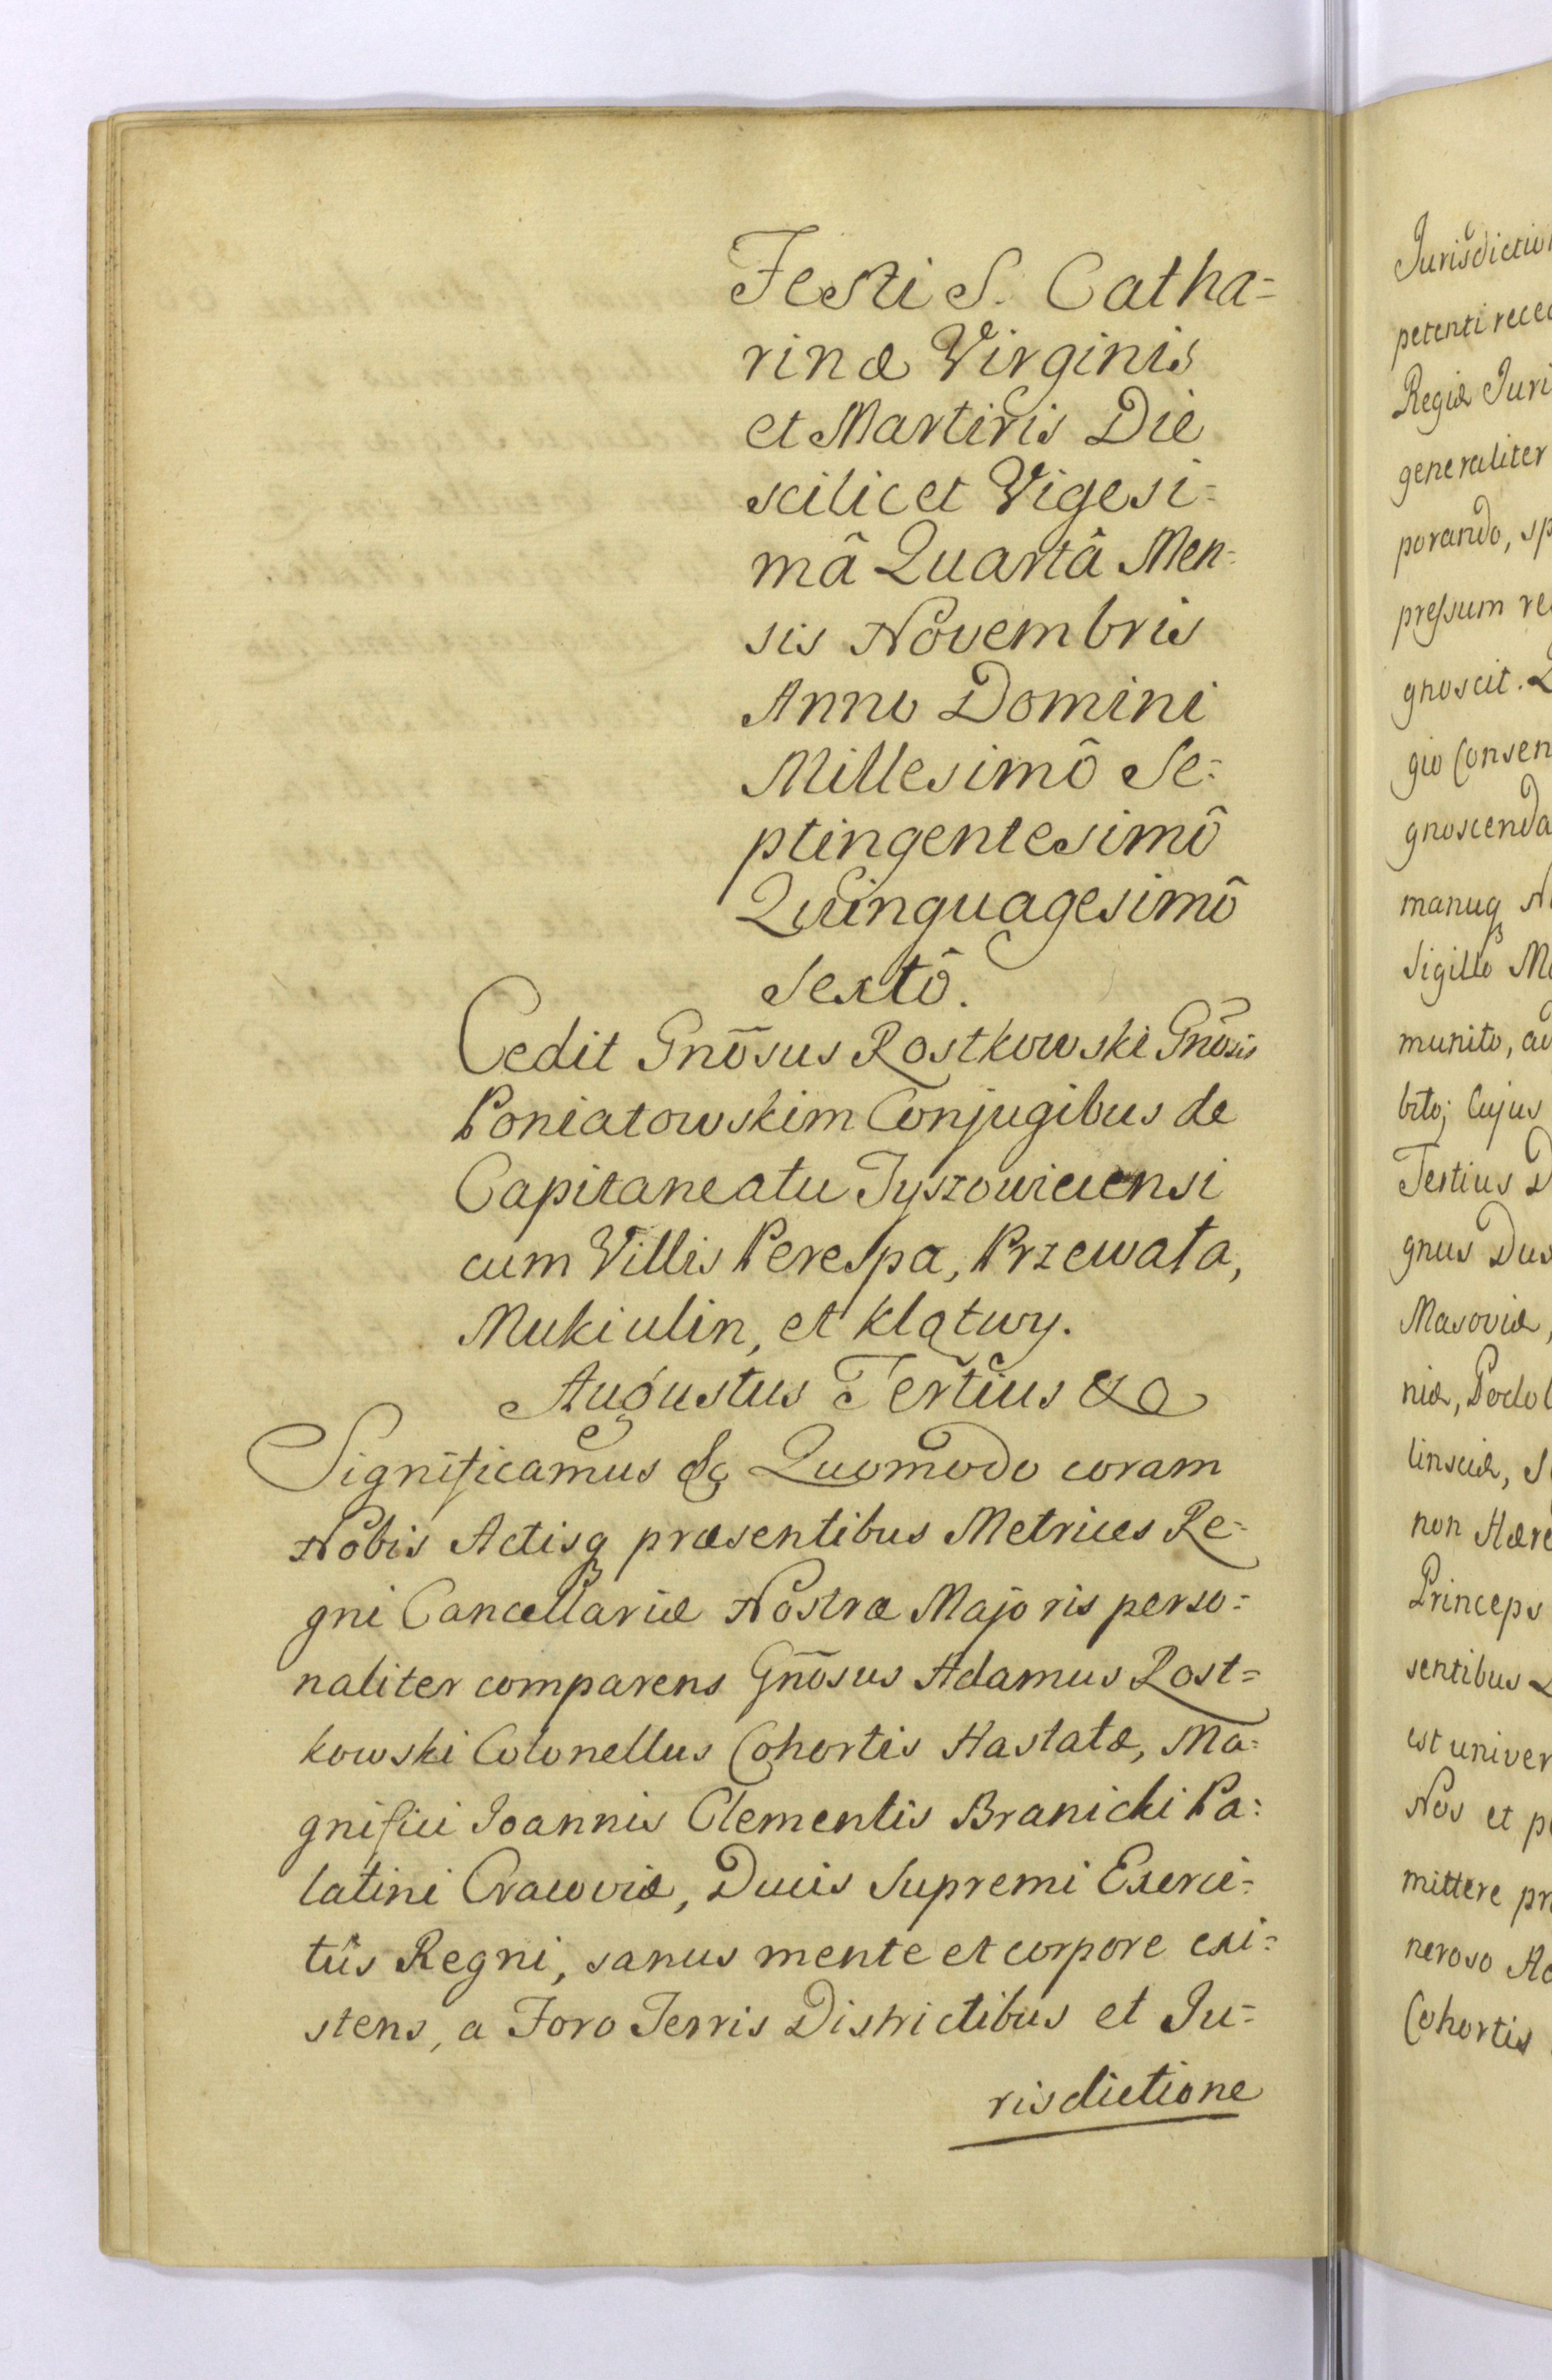 Festi S. Catha=
rinæ Virginis
et Martiris Die
scilicet Vigesi=
mâ Quartâ Men=
sis Novembris
Anno Domini
Millesimô Se=
ptingentesimô
Quinquagesimô
Sextô.
Cedit Gnõsus Rostkowski Gnõsis
Poniatowskim Conjugibus de
Capitaneatu Tyszowiciensi
cum Villis Perespa, Przewała,
Mukiulin, et Klątwy.
Augustus Tertius &c
Significamus &c Quomodo coram
Nobis Actisq præsentibus Metrices Re=
gni Cancellariæ Nostræ Majoris perso=
naliter comparens Gnõsus Adamus Rost=
kowski Colonellus Cohortis Hastatæ, Ma=
gnifici Joannis Clementis Branicki Pa=
latini Cracoviæ, Ducis Supremi Exerci=
tûs Regni, sanus mente et corpore exi=
stens, a Foro Terris Districtibus et Ju=
risdictione
Jurisdiction
petenti rece
Regiæ Juri
generaliter
porando, sp
pressum re
gnoscit.
gio Consen
gnoscenda
manuq
Sigillo
munito,
Cujus
Tertius D
gnus Dux
Masoviæ,
niæ, Podol
linsciæ,
non Hære
Princeps
sentibus
est univer
Nos et
mittere
neroso
Cohortis